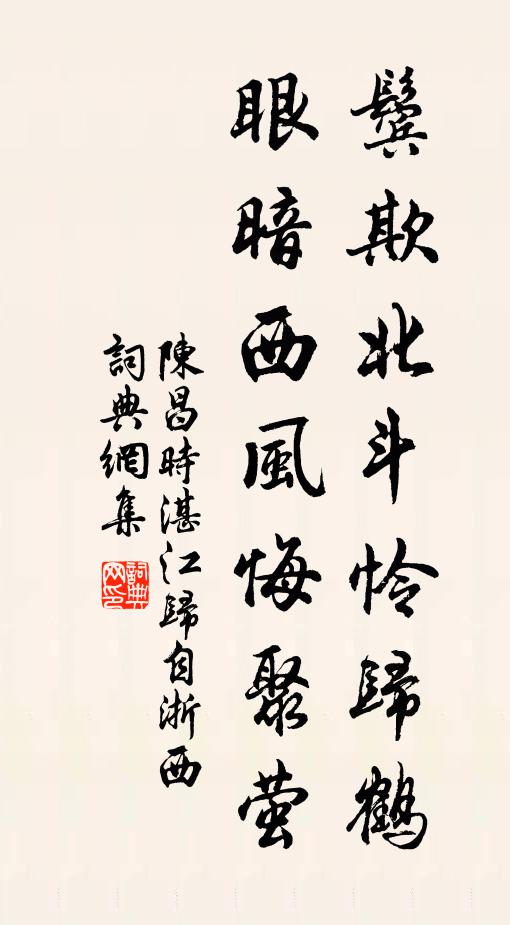 鬢欺北斗怜歸鶴
眼暗西風悔聚萤
陳昌時湛江歸自浙西
詞典網集
詞典网印